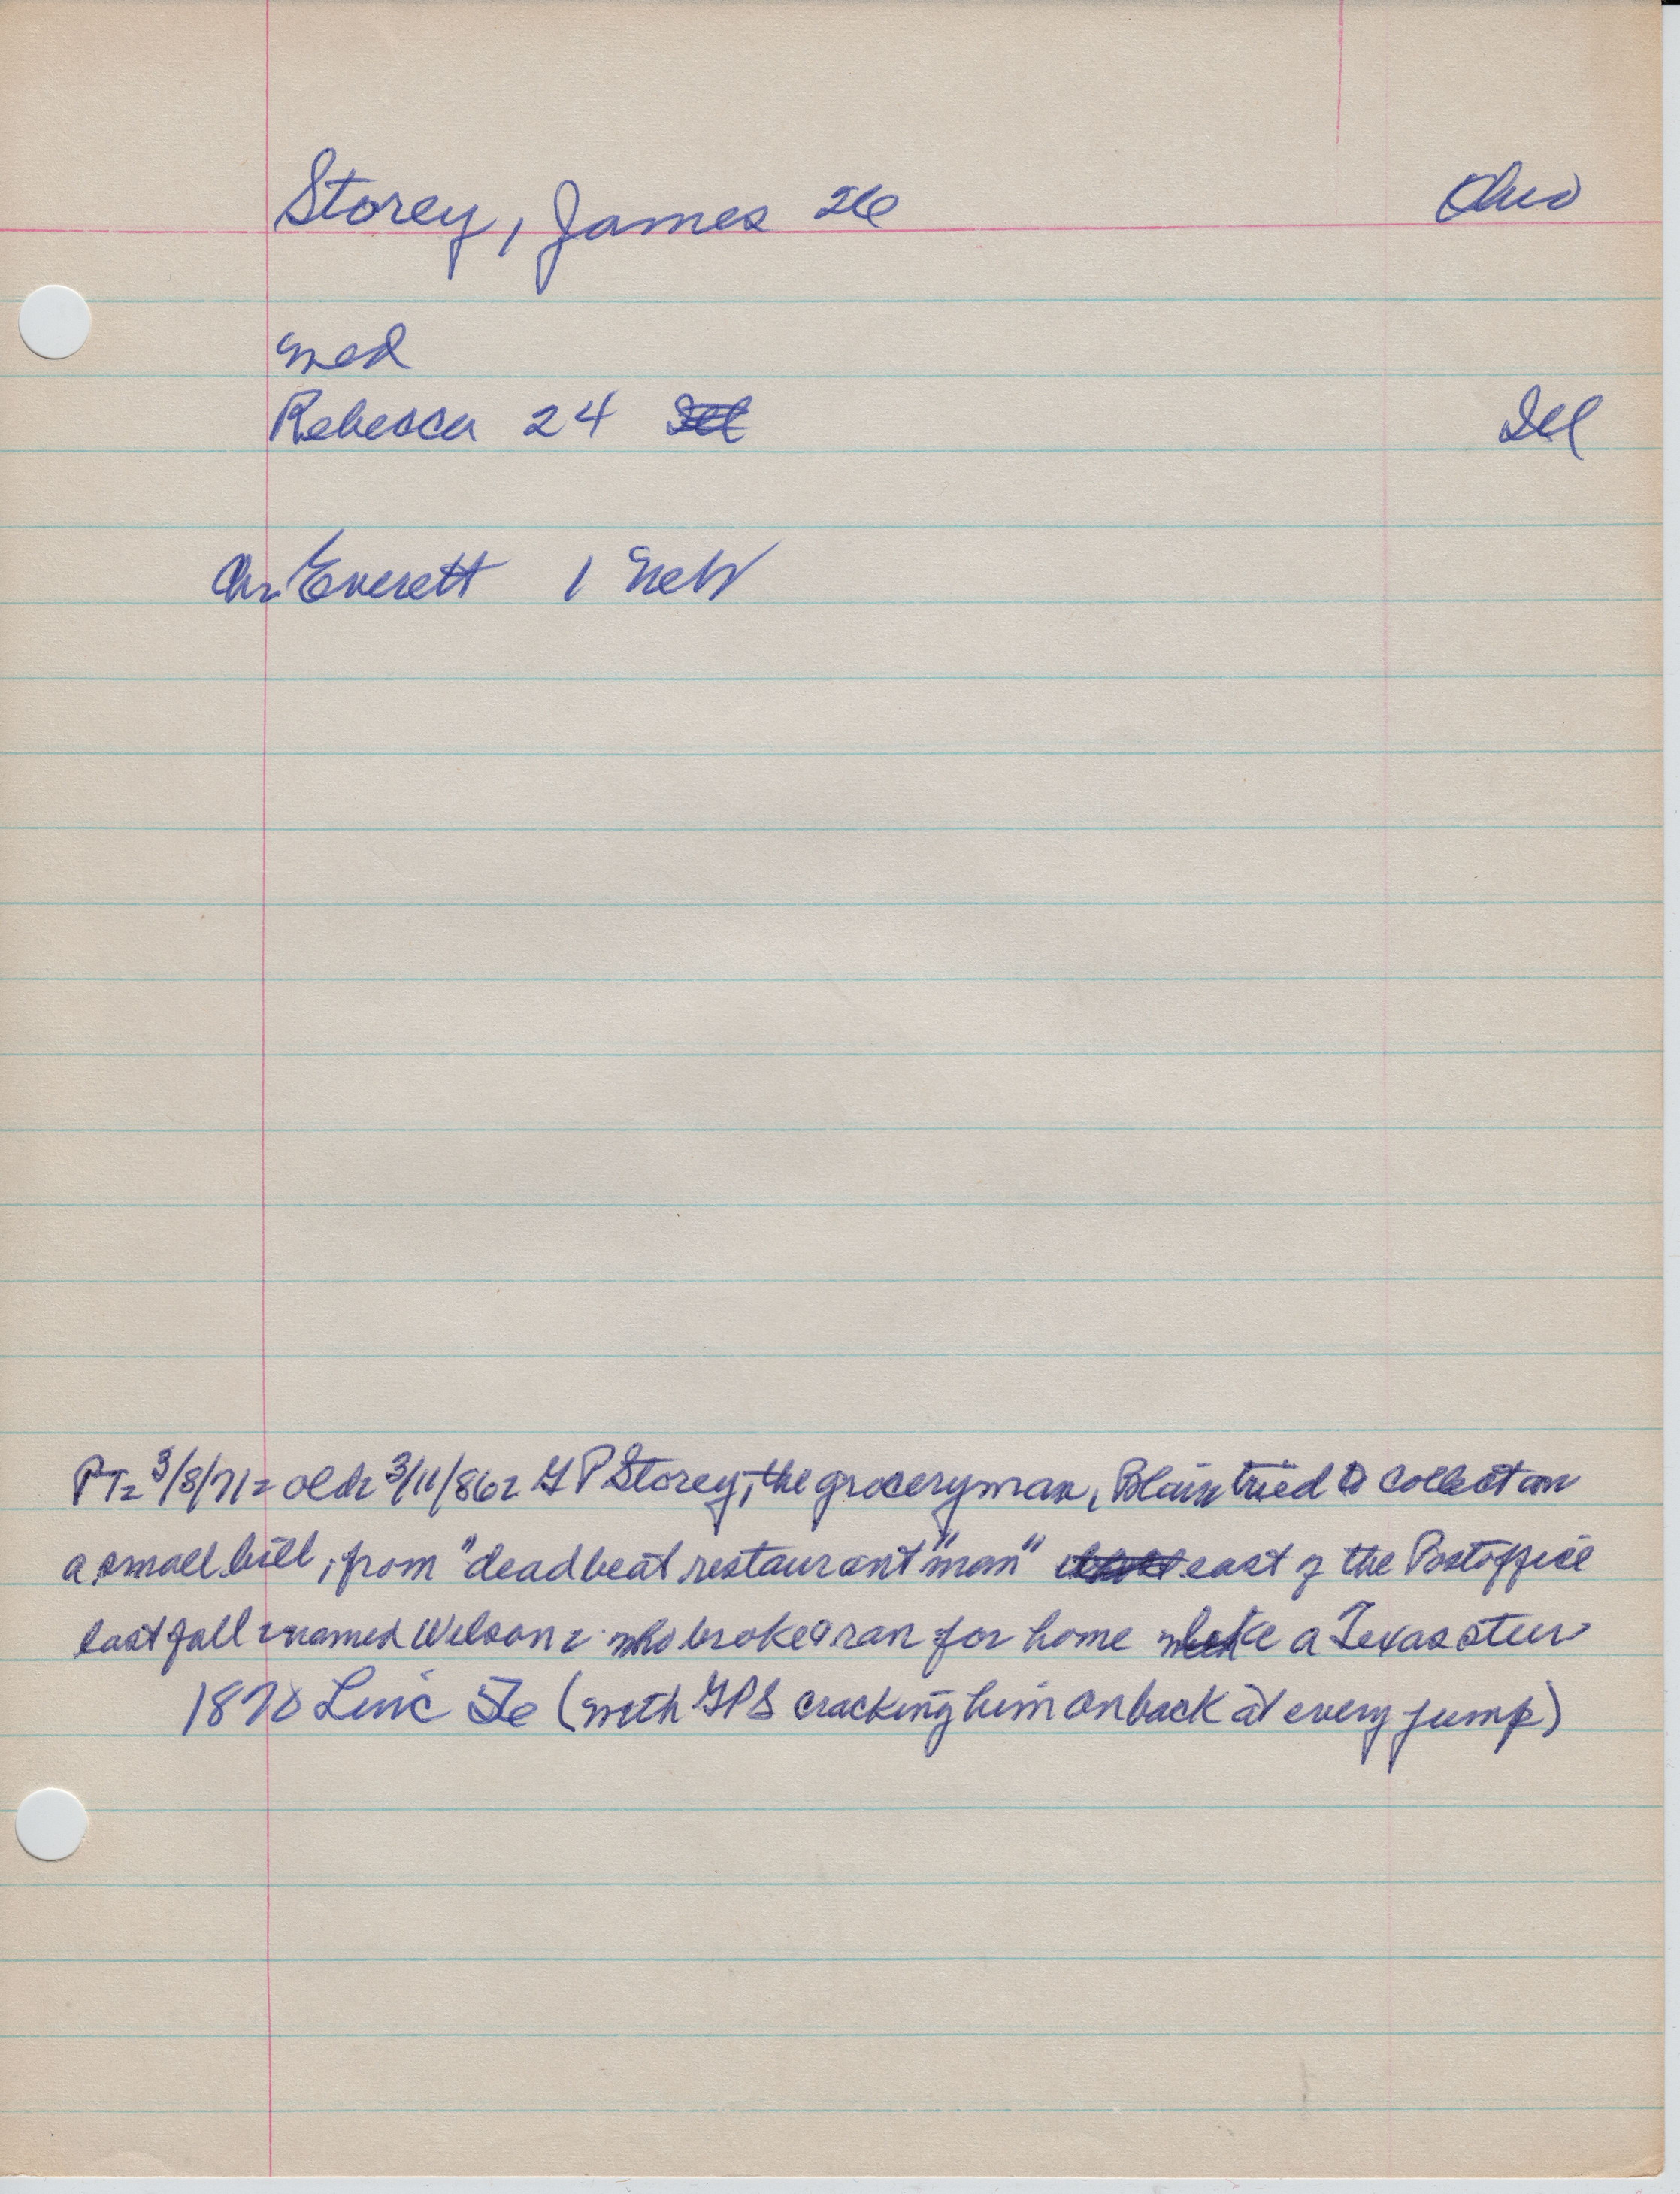 Storey, James 26 Ohio
med
Rebecca 24 Ill Ill
Chr Everett 1 Neb
PT= 3/8/71= old= 3/11/86= G P Storey, the groceryman, Blair tried to collect on
a small bill, from "deadbeat restaurant "man" east of the Postoffice
last fall = named Wilson = who broke & ran for home like a Texas steer
1870 (with GPS cracking him on back at every jump)